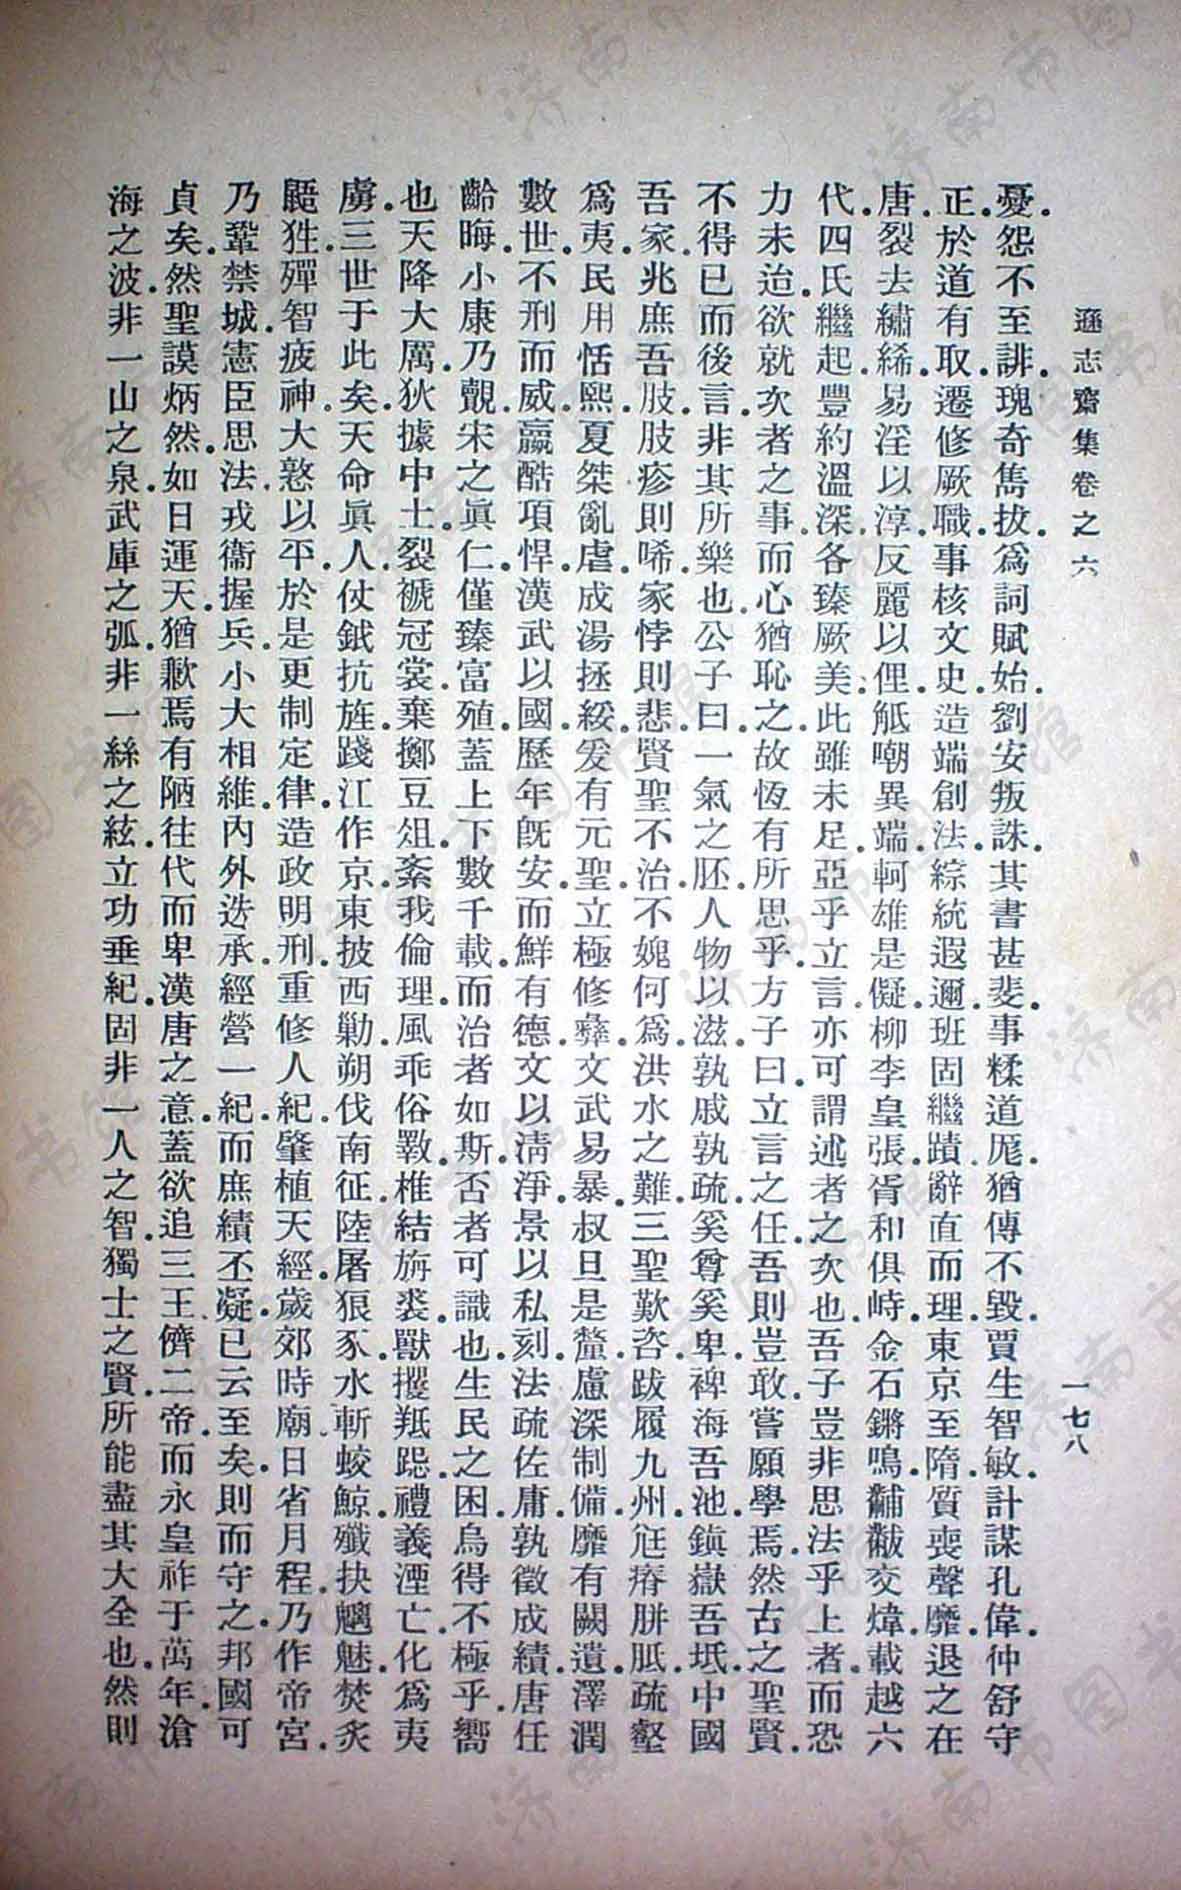 遜志齋集卷之六
一七八
憂。怨不至誹。瑰奇雋拔。爲詞賦始。劉安叛誅。其書甚斐。事糅道厖。猶傳不毀。賈生智敏。計謀孔偉。仲舒守
正。於道有取。遷修厥職。事核文史。造端創法。綜統遐邇。班固繼蹟。辭直而理。東京至隋。質喪聲靡。退之在
唐。裂去繡絺。易淫以淳。反麗以俚。觝嘲異端。軻雄是儗。柳李皇張。胥和俱峙。金石鏘鳴。黼黻交煒。載越六
代。四氏繼起。豐約溫深。各臻厥美。此雖未足。亞乎立言。亦可謂述者之次也。吾子豈非思法乎上者。而恐
力未迨。欲就次者之事。而心猶恥之。故恆有所思乎。方子曰。立言之任。吾則豈敢。嘗願學焉。然古之聖賢。
不得已而後言。非其所樂也。公子曰。一氣之胚。人物以滋。孰戚孰疏。奚尊奚卑。裨海吾池。鎮嶽吾坻。中國
吾家。兆庶吾肢。肢疹則唏。家悖則悲。賢聖不治。不媿何爲。洪水之難。三聖歎咨。跋履九州。尩瘠胼胝。疏壑
爲夷。民用恬熙。夏桀亂虐。成湯拯綏。爰有元聖。立極修彝。文武易暴。叔旦是釐。慮深制備。靡有闕遺。澤潤
數世。不刑而威。嬴酷項悍。漢武以國。歷年旣安。而鮮有德。文以淸淨。景以私刻。法疏佐庸。孰徵成績。唐任
齡晦。小康乃覿。宋之眞仁。僅臻富殖。蓋上下數千載。而治者如斯。否者可識也。生民之困。烏得不極乎。嚮
也天降大厲。狄據中土。裂褫冠裳。棄擲豆俎。紊我倫理。風乖俗斁。椎結旃裘。獸攫羝跽。禮義湮亡。化爲夷
虜。三世于此矣。天命眞人。仗鉞抗旌。踐江作京。東披西勦。朔伐南征。陸屠狼豕。水斬蛟鯨。殲抉魑魅。焚炙
鼯狌。殫智疲神。大憝以平。於是更制定律。造政明刑。重修人紀。肇植天經。歲郊時廟。日省月程。乃作帝宮。
乃鞏禁城。憲臣思法。戎衞握兵。小大相維。內外迭承。經營一紀。而庶績丕凝。已云至矣。則而守之。邦國可
貞矣。然聖謨炳然。如日運天。猶歉焉有陋往代而卑漢唐之意。蓋欲追三王儕二帝。而永皇祚于萬年。滄
海之波。非一山之泉。武庫之弧。非一絲之絃。立功垂紀。固非一人之智。獨士之賢。所能盡其大全也。然則